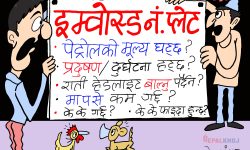 इम्वोस्ड नं. प्लेट
• पेट्रोलको मूल्य घट्छ ?
• प्रदुषण / दुर्घटना हट्छ ?
• राती हेडलाईट बाल्नु पर्दैन ?
• मापसे कम गर्छ ?
के के गर्छ ? के के फाइदा हुन्छ ?
NEPALKHOJ